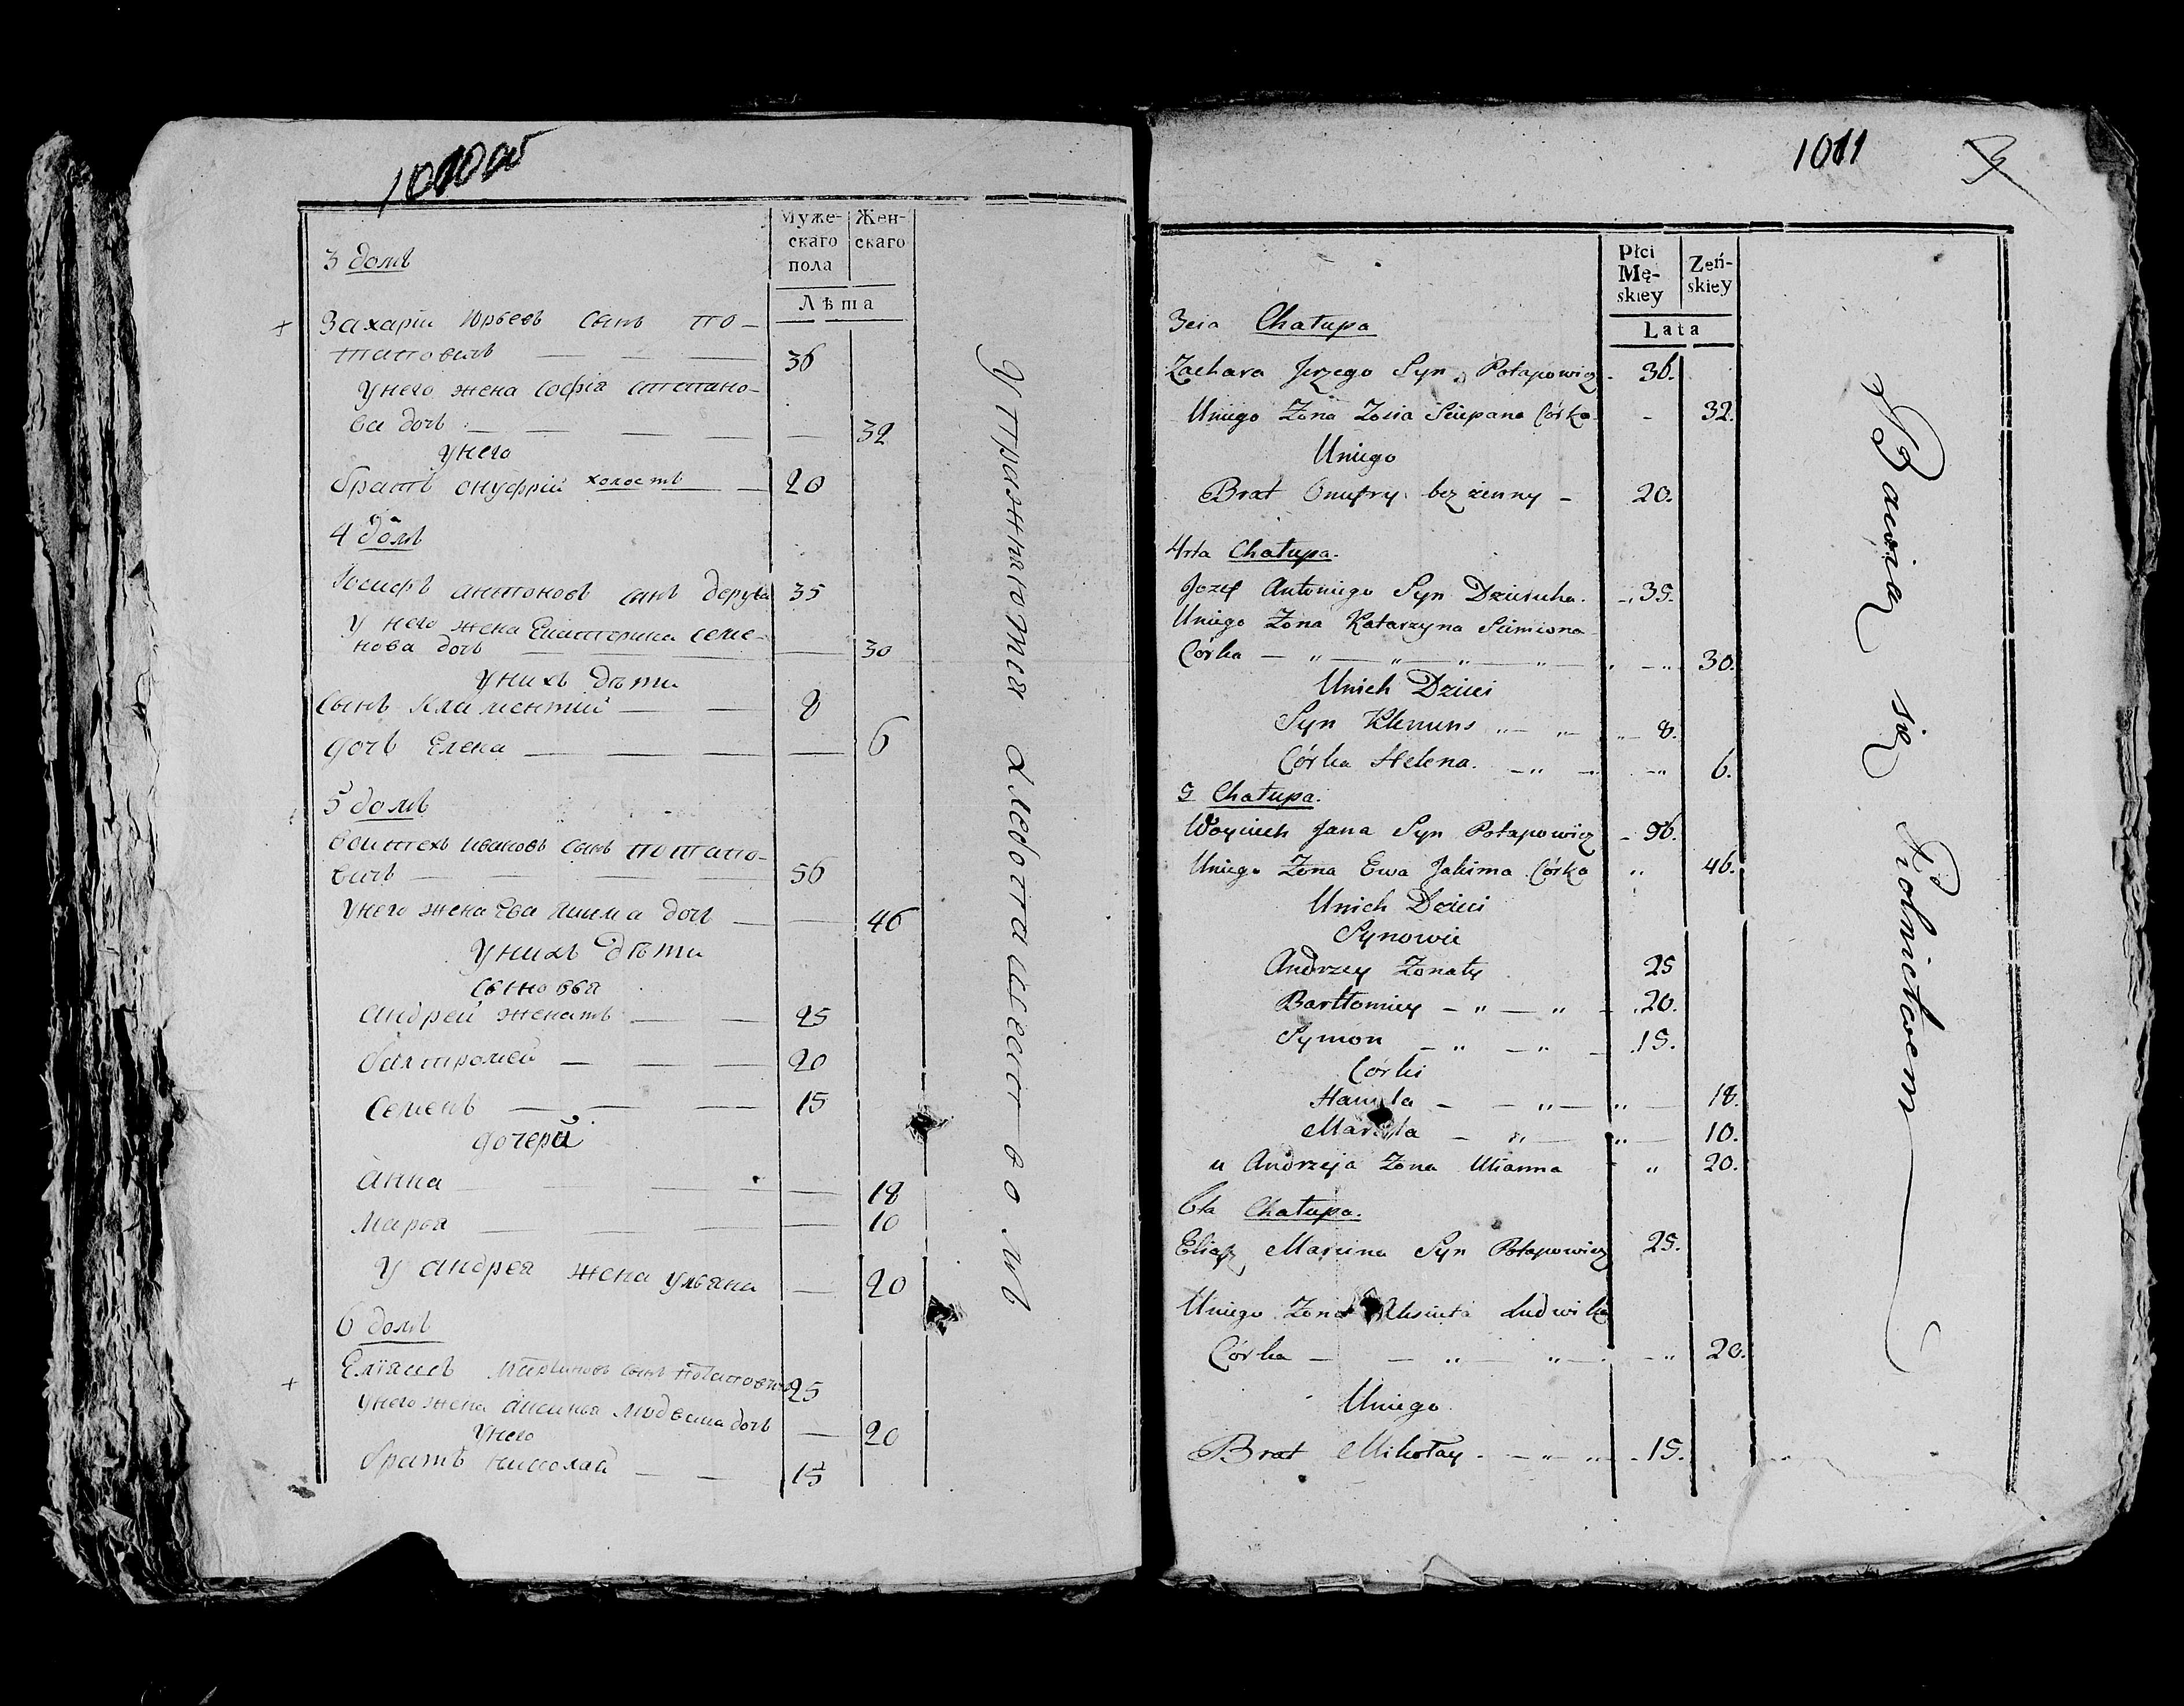 1010об
Муже- Жен-
скаго скаго
пола
Лѣта
3 домъ
Захарій Юрьевъ сынъ По-
таповичъ — — — 36
У него жена Софія Степано-
ва дочь — — — — — 32
У него
братъ Онуфрій холостъ — 20
4 домъ
Іосифъ Антоновъ сынъ Деруха 35
У него жена Екатерина Семе-
нова дочь — — 30
У нихъ дѣти
Сынъ Клементій — — 8
дочь Елена — — — — 6
5 домъ
Войтехъ Ивановъ сынъ Потапо-
вичъ — — — — 56
У него жена Ева Якима дочь — — 46
У нихъ дѣти
Сыновья
Андрей женатъ — — 25
Балтромей — — — 20
Семенъ — — — 15
дочери
Анна — — — — — 18
Марья — — — — 10
У Андрея жена Ульяна — 20
6 домъ
Еліяшъ Марциновъ сынъ Потаповичъ 25
У него жена Аксинья Людвика дочь — 20
У него
братъ Николай — — 15
Упражняются хлебопашествомъ
1011
3
Płci Męskiey Zeń-
skiey
Lata
3cia Chałupa
Zachara Jerzego Syn Potapowicz - 36.
Uniego Zona Zosia Sciepana Córka - 32.
Uniego
Brat Onufry bez zenny - 20.
4rta Chałupa.
Jozef Antoniego Syn Dzieruha. - 35.
Uniego Zona Katarzyna Siemiona
Córka — " — " — " — " — 30.
Unich Dzieci
Syn Klemens " — " — " — 8.
Córka Helena. — " — — " 6.
5 Chałupa.
Woyciech Jana Syn Potapowicz - 56.
Uniego Zona Ewa Jakima Córka " 46.
Unich Dzieci
Synowie
Andrzey Zonaty 25
Bartłomiey — " — " — 20.
Symon — " — " — 15.
Córki
Hanula — — " — " — 18.
Maryla — " — " — 10.
u Andrzeja Zona Ulianna - " 20.
6ta Chałupa.
Eliasz Marcina Syn Potapowicz 25.
Uniego Zona Aksinia Ludwika
Córka — — " — " — . — " 20.
Uniego
Brat Mikołay. — " — " - 15.
Bawią się Rolnictwem